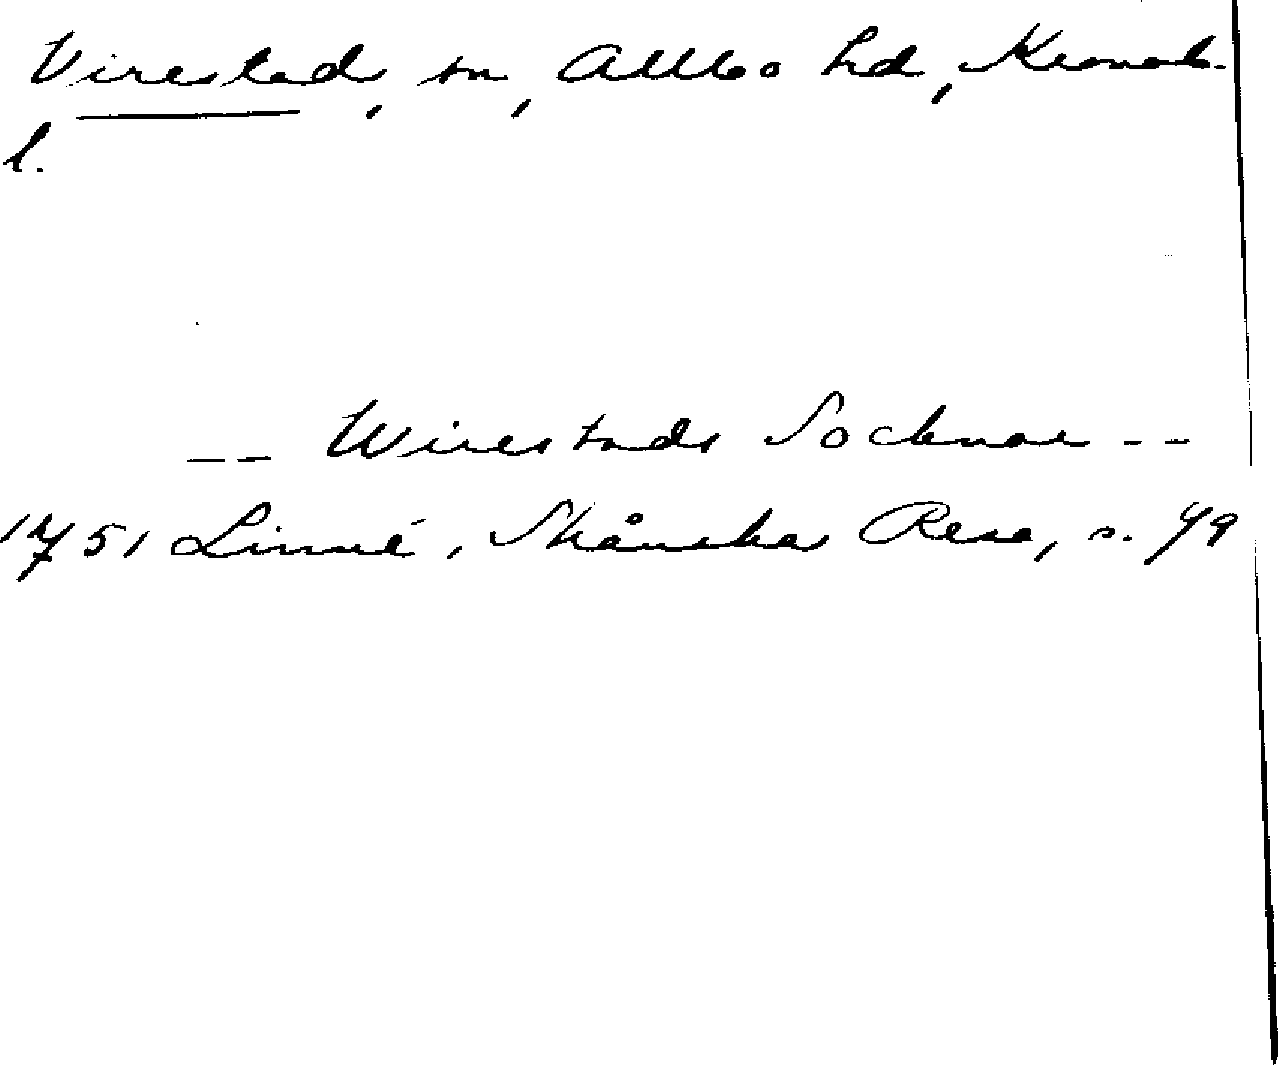 Virestad, sn, Allbo hd, Kronob.
l.
-- Wirestads Socknar --
1751 Linné, Skånska Resa, s. 49